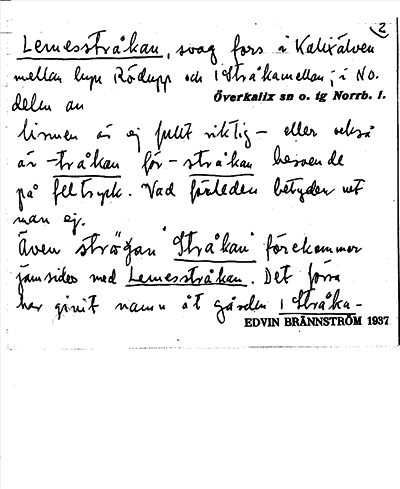 2
Lemesstråkan, svag fors i Kalixälven
mellan byn Rödupp och 1 Stråkamellan; i NO.
delen av Överkalix sn o. tg Norrb. l.
är ej fullt riktig - eller också
är -tråkan för -stråkan beroende
på feltryck. Vad förleden betyder vet
man ej.
Även strögan "Stråkan" förekommer
jämsides med Lemesstråkan. Det förra
har givit namn åt gården 1 Stråka-
EDVIN BRÄNNSTRÖM 1937